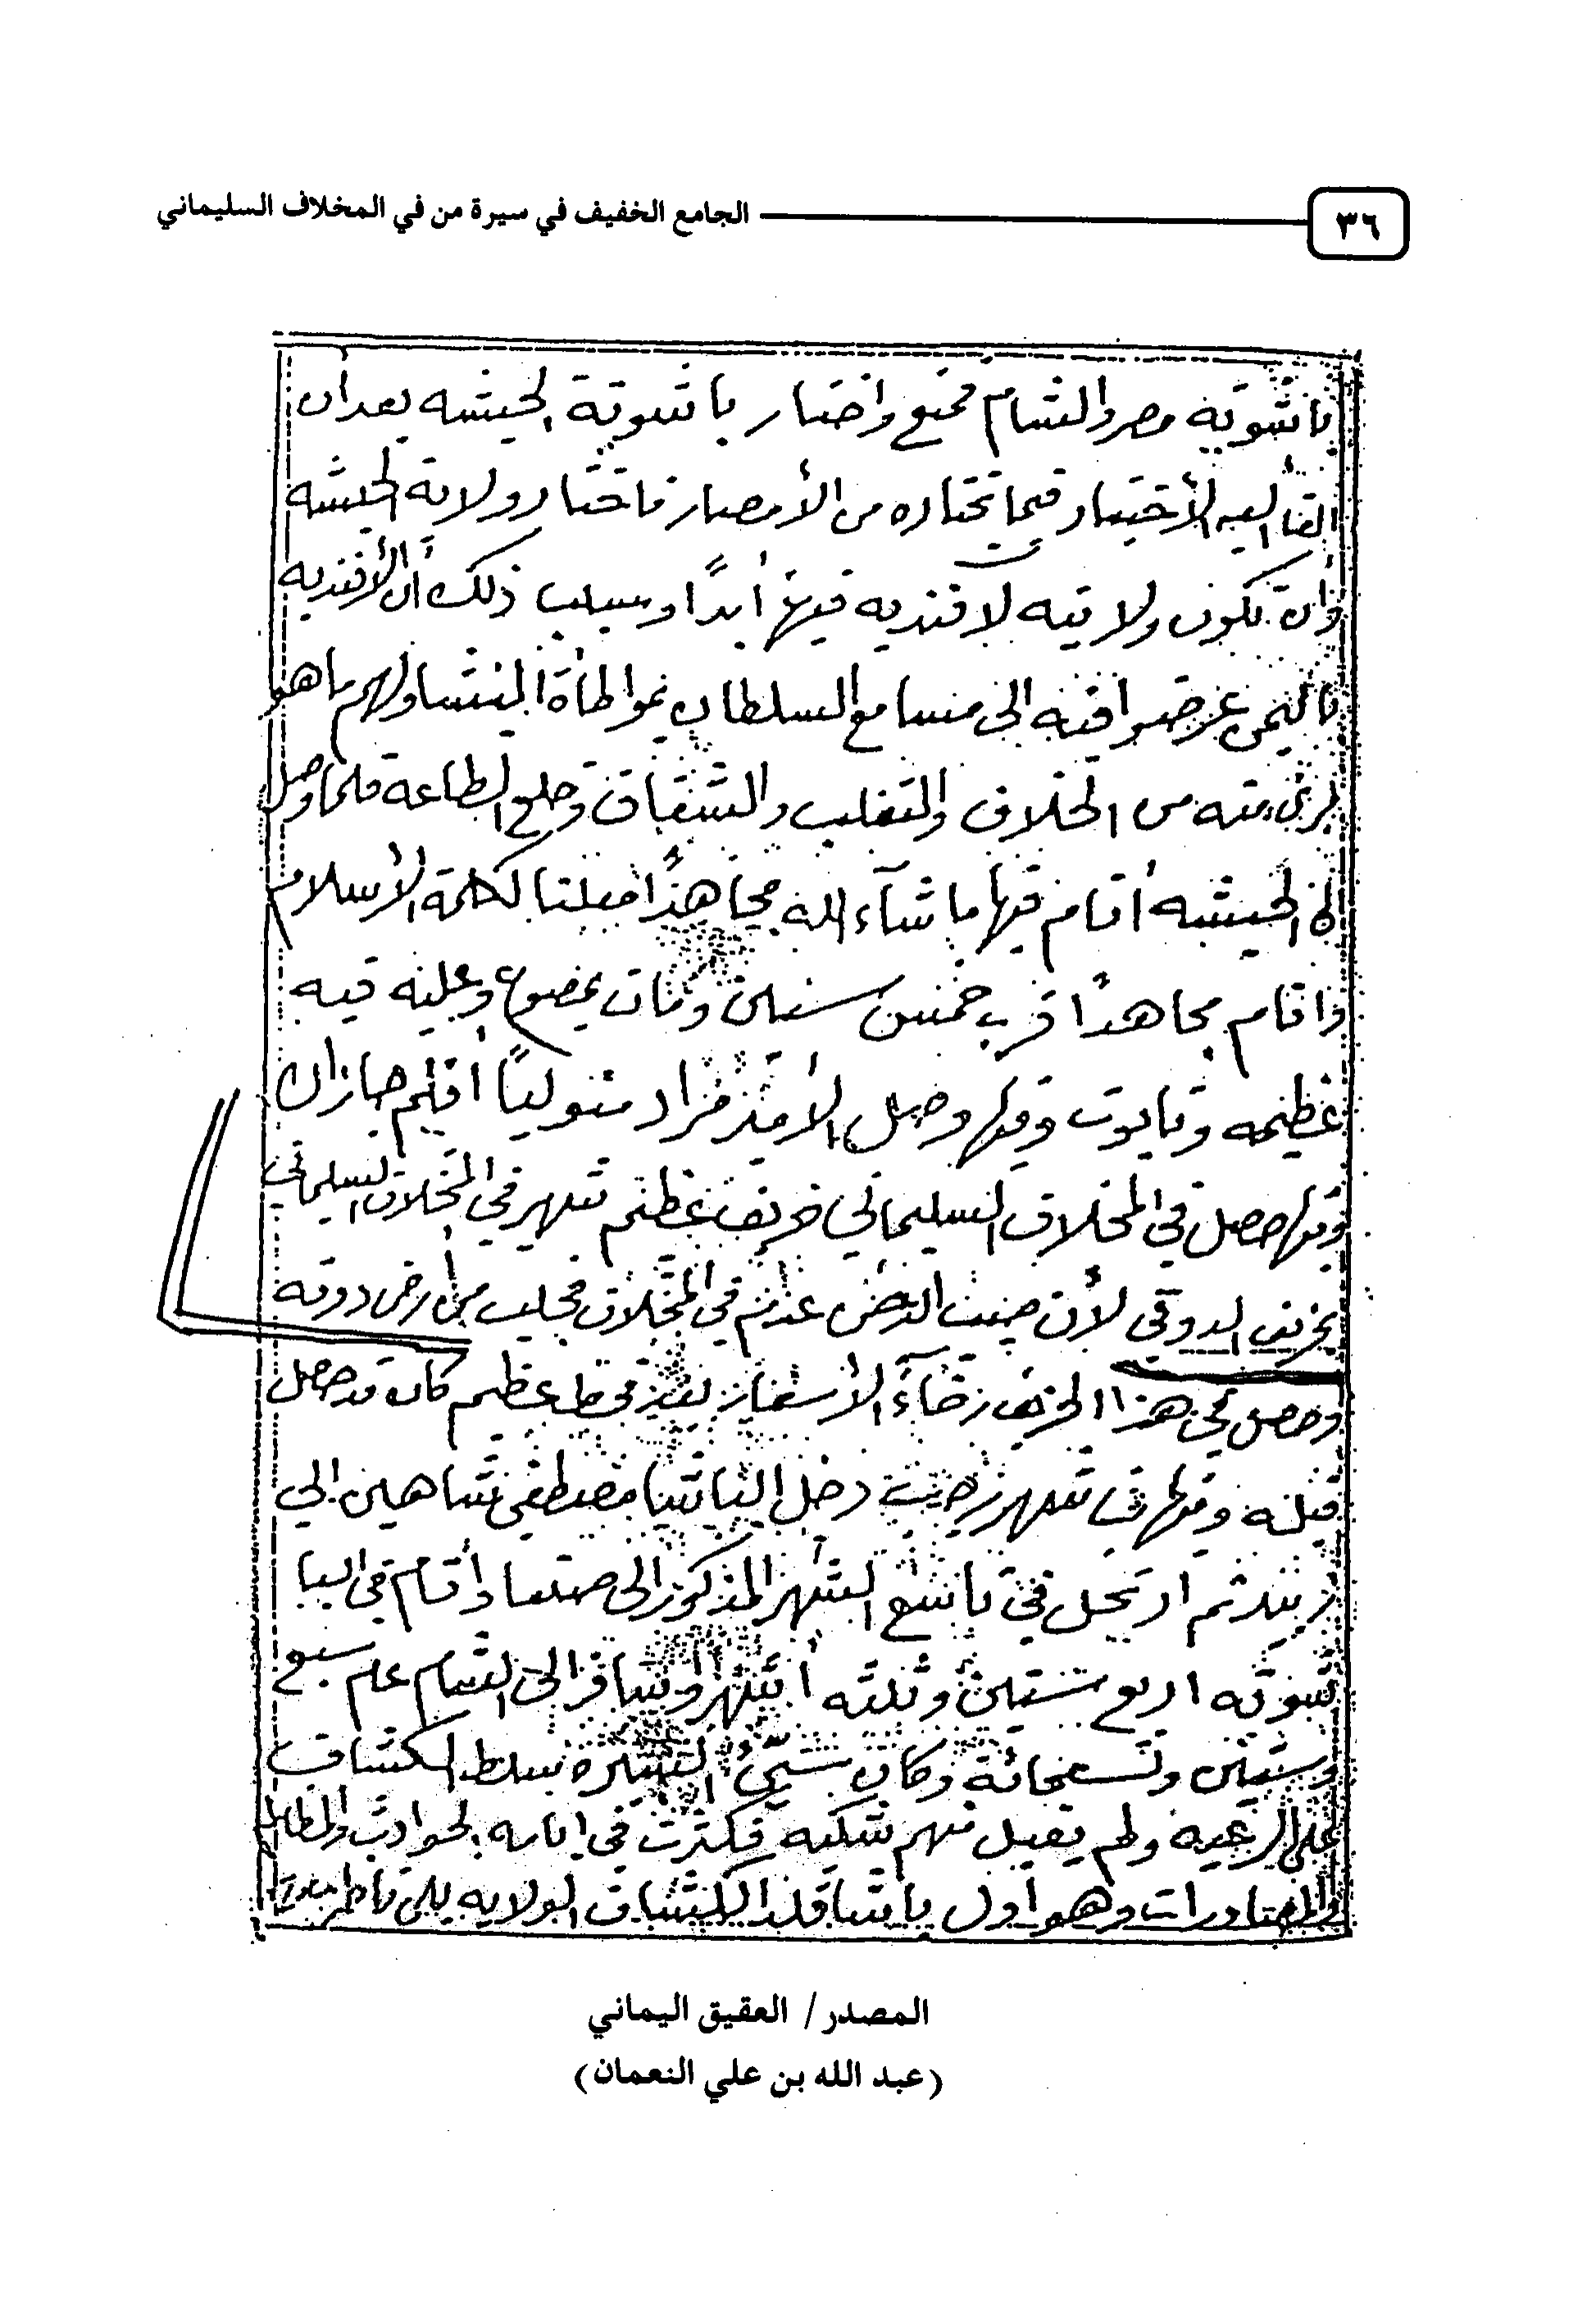 ٣٦
الجامع الخفيف في سيرة من في المخلاف السليماني
باشوية مصر والشام فمنع واختار باشوية الحبشه بعد أن
القا اليه الأختيار فيما تختاره من الأمصار فاختار ولاية الحبشه
وان تكون ولايته لافنديه فيها أبدًا وسبب ذلك أن الأفنديه
باليمن الى مسامع السلطان بمواطأة ولهم ما هو
برئ منه من الخلاف والتغلب والشقاق وخلع الطاعة فلما وصل
الى الحبشه أقام فيها ما شآء الله مجاهدًا لكلمة الأسلام
واقام مجاهدًا قرب خمس سنين ومات بمصوع وعليه قبه
عظيمه وتابوت وفيها وصل الأمير مراد متوليًا أقليم جازان
وفيها حصل في المخلاف السليماني خريف عظيم شهير في المخلاف السليماني
بخريف الدوقي لأن عدم في المخلاف فجلب من أرض دوقه
وحصل في هذا الخريف رخآء الأسعار بعد قحط عظيم كان قد حصل
قبله وفيها شهر رجب دخل الباشا مصطفى شاهين الى
زبيد ثم ارتحل في تاسع الشهر المذكور الى صنعا وأقام في البا
شويه اربع سنين وثلثه أشهر وسافر الى الشام عام سبع
وستين وتسعمائة وكان سيئ السيره سلط الكشاف
على الرعيه ولم يقبل منهم شكيه فكثرت في ايامه الحوادث والمظالم
والمصادرات وهو أول باشا قلد الكشاف الولايه
المصدر / العقيق اليماني
(عبد الله بن علي النعمان)